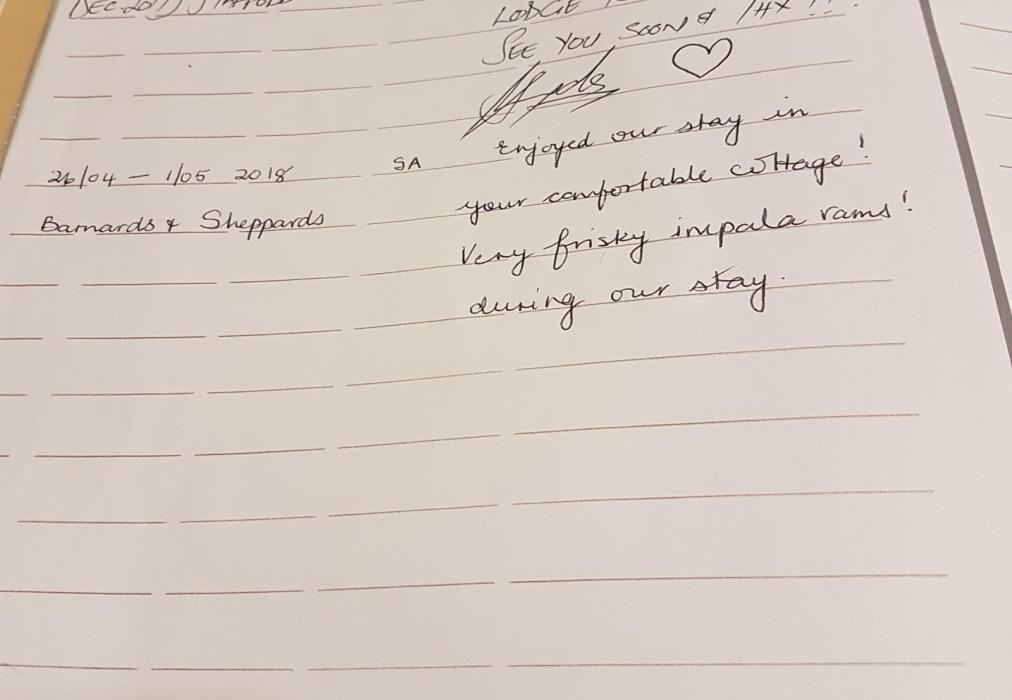 DEC 2017
LODGE
SEE YOU SOON & THX !!
26/04 – 1/05 2018 SA Enjoyed our stay in
Barnards & Sheppards your comfortable cottage!
Very frisky impala rams!
during our stay.